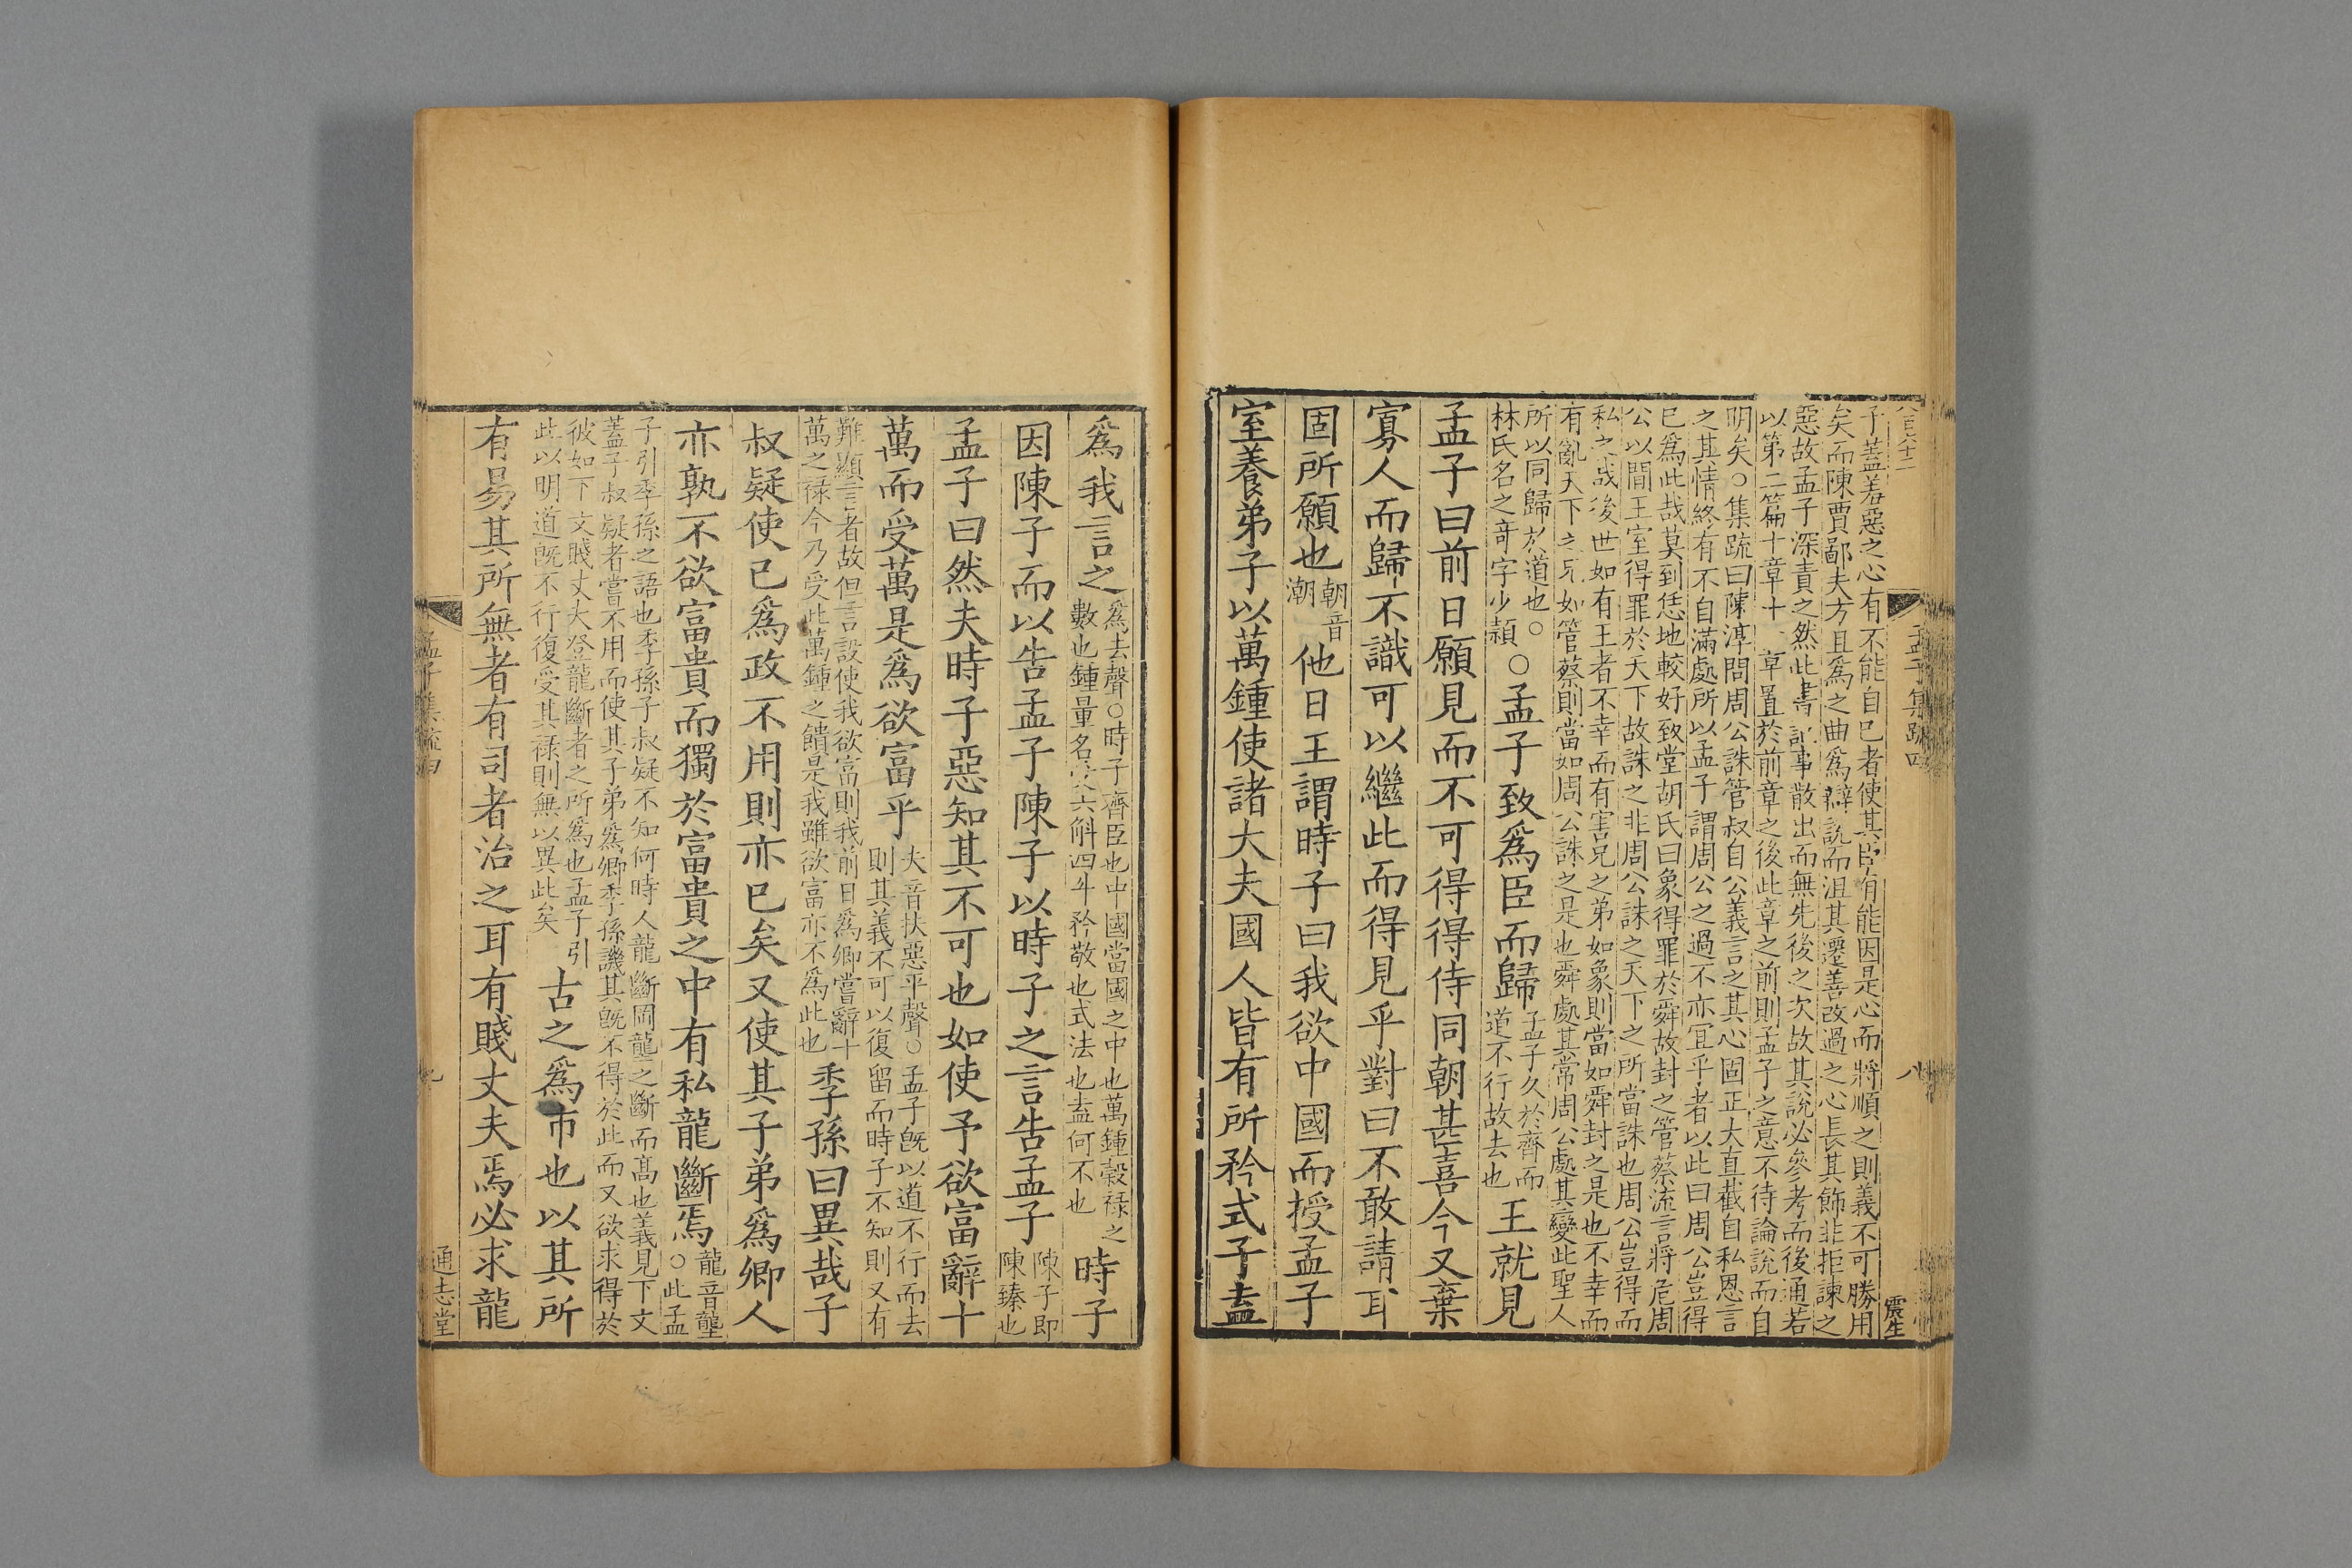 孟子集疏四
八
震生
子蓋羞惡之心有不能自已者使其臣有能因是心而將順之則義不可勝用
矣而陳賈鄙夫方且爲之曲爲辯說而沮其遷善改過之心長其飾非拒諫之
惡故孟子深責之然此書記事散出而無先後之次故其說必參考而後通若
以第二篇十章十一章置於前章之後此章之前則孟子之意不待論說而自
明矣○集疏曰陳淳問周公誅管叔自公義言之其心固正大直截自私恩言
之其情終有不自滿處所以孟子謂周公之過不亦宜乎者以此曰周公豈得
已爲此哉莫到恁地較好致堂胡氏曰象得罪於舜故封之管蔡流言將危周
公以間王室得罪於天下故誅之非周公誅之天下之所當誅也周公豈得而
私之哉後世如有王者不幸而有害兄之弟如象則當如舜封之是也不幸而
有亂天下之兄如管蔡則當如周公誅之是也舜處其常周公處其變此聖人
所以同歸於道也○
林氏名之奇字少穎
○孟子致爲臣而歸
孟子久於齊而
道不行故去也
王就見
孟子曰前日願見而不可得得侍同朝甚喜今又棄
寡人而歸不識可以繼此而得見乎對曰不敢請耳
固所願也
朝音
潮
他日王謂時子曰我欲中國而授孟子
室養弟子以萬鍾使諸大夫國人皆有所矜式子盍
爲我言之
爲去聲○時子齊臣也中國當國之中也萬鍾穀祿之
數也鍾量名受六斛四斗矜敬也式法也盍何不也
時子
因陳子而以告孟子陳子以時子之言告孟子
陳子即
陳臻也
孟子曰然夫時子惡知其不可也如使予欲富辭十
萬而受萬是爲欲富乎
夫音扶惡平聲○孟子旣以道不行而去
則其義不可以復留而時子不知則又有
難顯言者故但言設使我欲富則我前日爲卿嘗辭十
萬之祿今乃受此萬鍾之饋是我雖欲富亦不爲此也
季孫曰異哉子
叔疑使己爲政不用則亦已矣又使其子弟爲卿人
亦孰不欲富貴而獨於富貴之中有私龍斷焉
龍音壟
○此孟
子引季孫之語也季孫子叔疑不知何時人龍斷岡龍之斷而高也義見下文
蓋子叔疑者嘗不用而使其子弟爲卿季孫譏其旣不得於此而又欲求得於
彼如下文賤丈夫登龍斷者之所爲也孟子引
此以明道旣不行復受其祿則無以異此矣
古之爲市也以其所
有易其所無者有司者治之耳有賤丈夫焉必求龍
孟子集疏四
九
通志堂